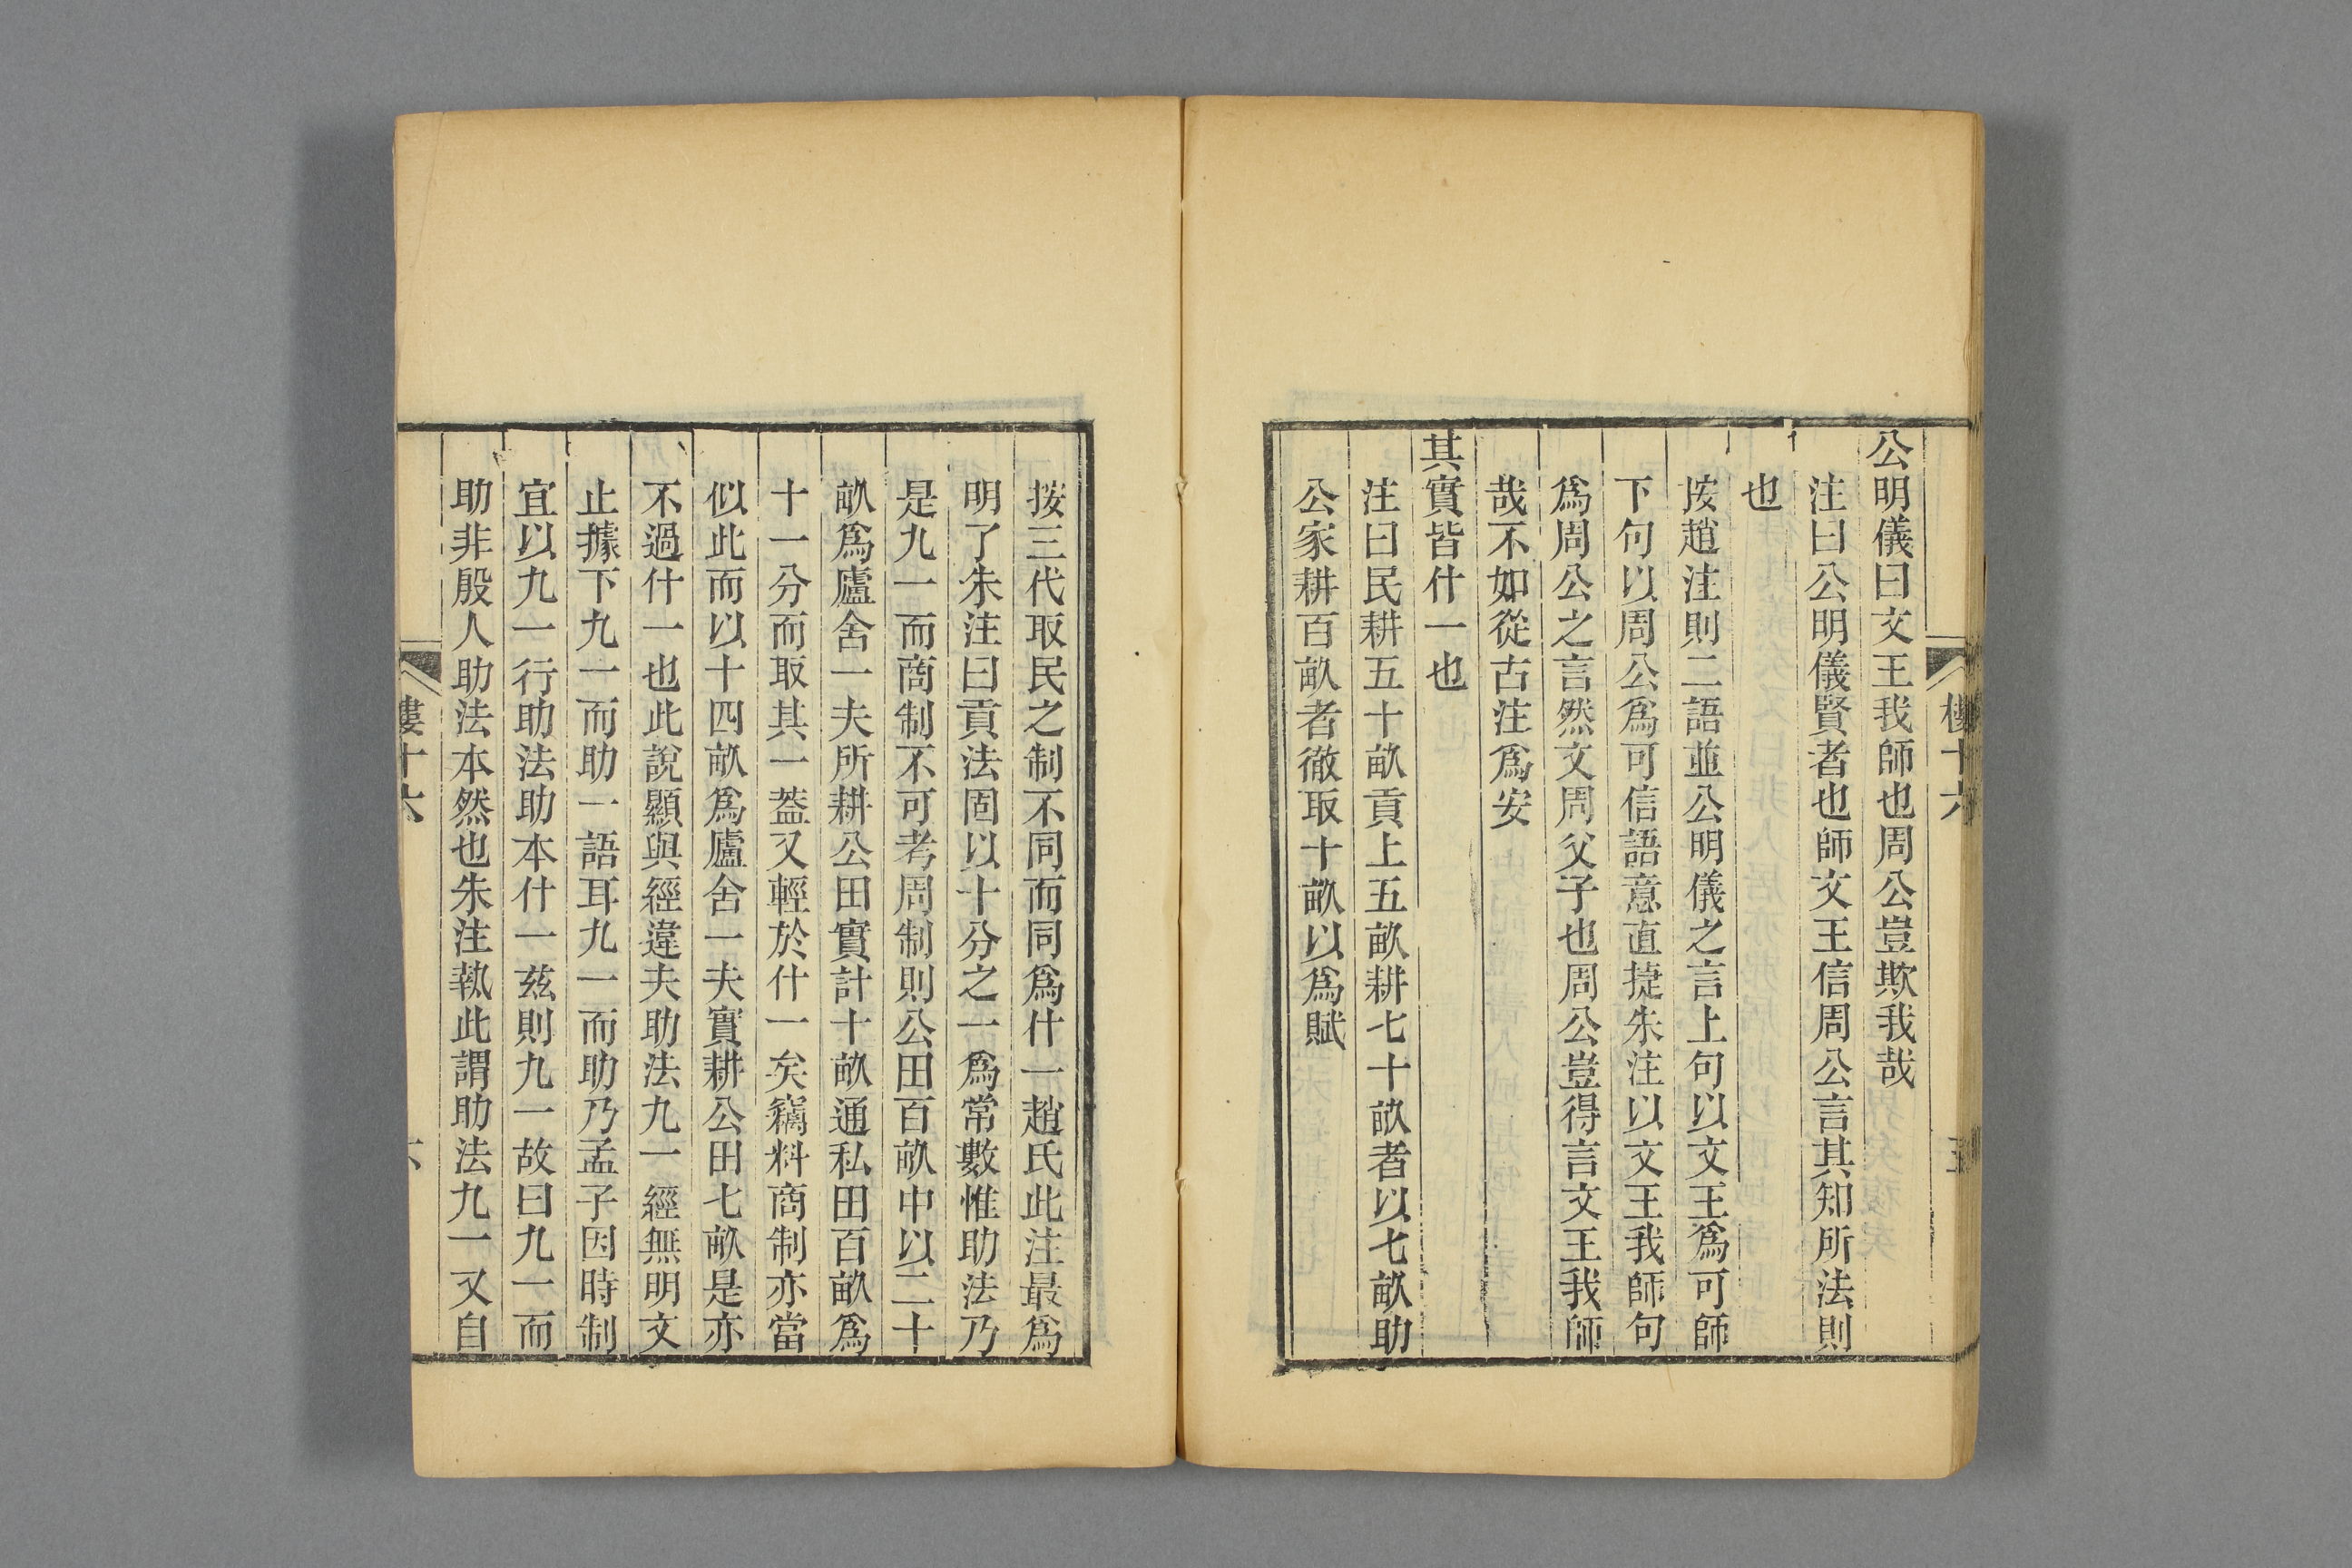 公明儀曰文王我師也周公豈欺我哉
注曰公明儀賢者也師文王信周公言其知所法則
也
按趙注則二語並公明儀之言上句以文王爲可師
下句以周公爲可信語意直捷朱注以文王我師句
爲周公之言然文周父子也周公豈得言文王我師
哉不如從古注爲安
其實皆什一也
注曰民耕五十畝貢上五畝耕七十畝者以七畝助
公家耕百畝者徹取十畝以爲賦
按三代取民之制不同而同爲什一趙氏此注最爲
明了朱注曰貢法固以十分之一爲常數惟助法乃
是九一而商制不可考周制則公田百畝中以二十
畝爲廬舍一夫所耕公田實計十畝通私田百畝爲
十一分而取其一蓋又輕於什一矣竊料商制亦當
似此而以十四畝爲廬舍一夫實耕公田七畝是亦
不過什一也此說顯與經違夫助法九一經無明文
止據下九一而助一語耳九一而助乃孟子因時制
宜以九一行助法助本什一茲則九一故曰九一而
助非殷人助法本然也朱注執此謂助法九一又自
樓十六